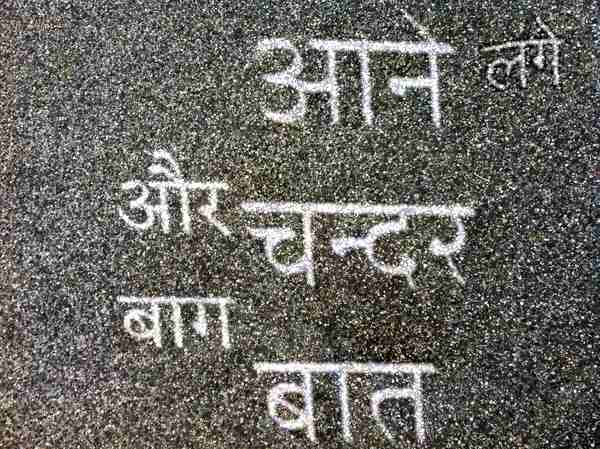 आने लगे
और चन्दर
बाग
बात